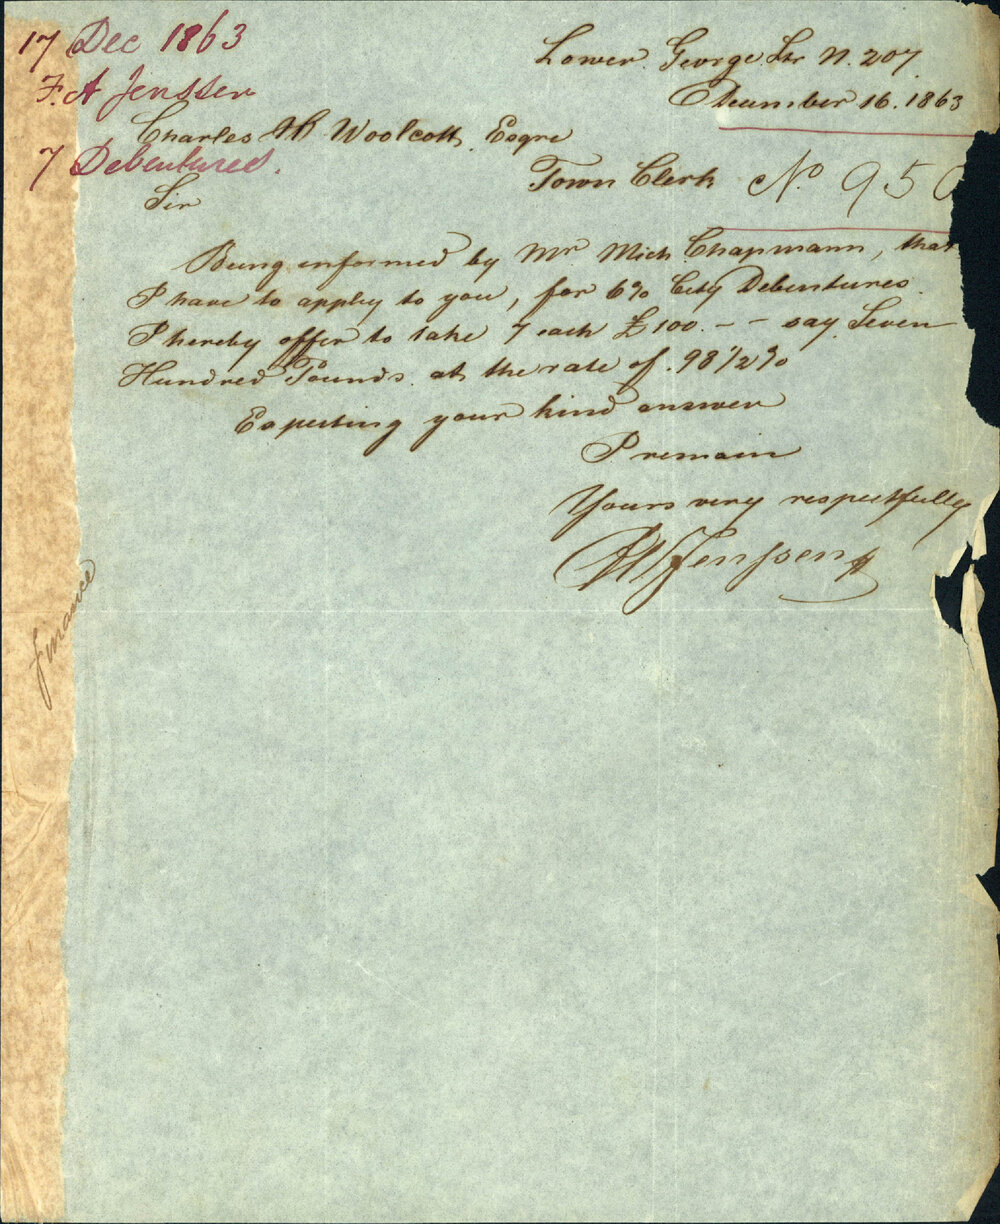 17 Dec 1863
F. A Jenssen
7 Debentures.
Lower George Str N. 207
December 16. 1863
Charles H Woolcott Esqre
Town Clerk
No 950
Sir
Being informed by Mr Mich Chapmann, that
I have to apply to you, for 6% City Debentures.
I hereby offer to take 7 each £100. - - say Seven
Hundred Pounds at the rate of 98 1/2 %
Expecting your kind answer
I remain
Yours very respectfully
Jenssen
Finance